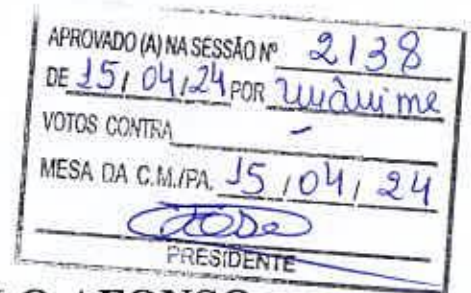 APROVADO (A) NA SESSÃO Nº 2138
DE 15/04/24 POR unânime
VOTOS CONTRA -
MESA DA C.M./PA. 15/04/24
PRESIDENTE
O AFONSO